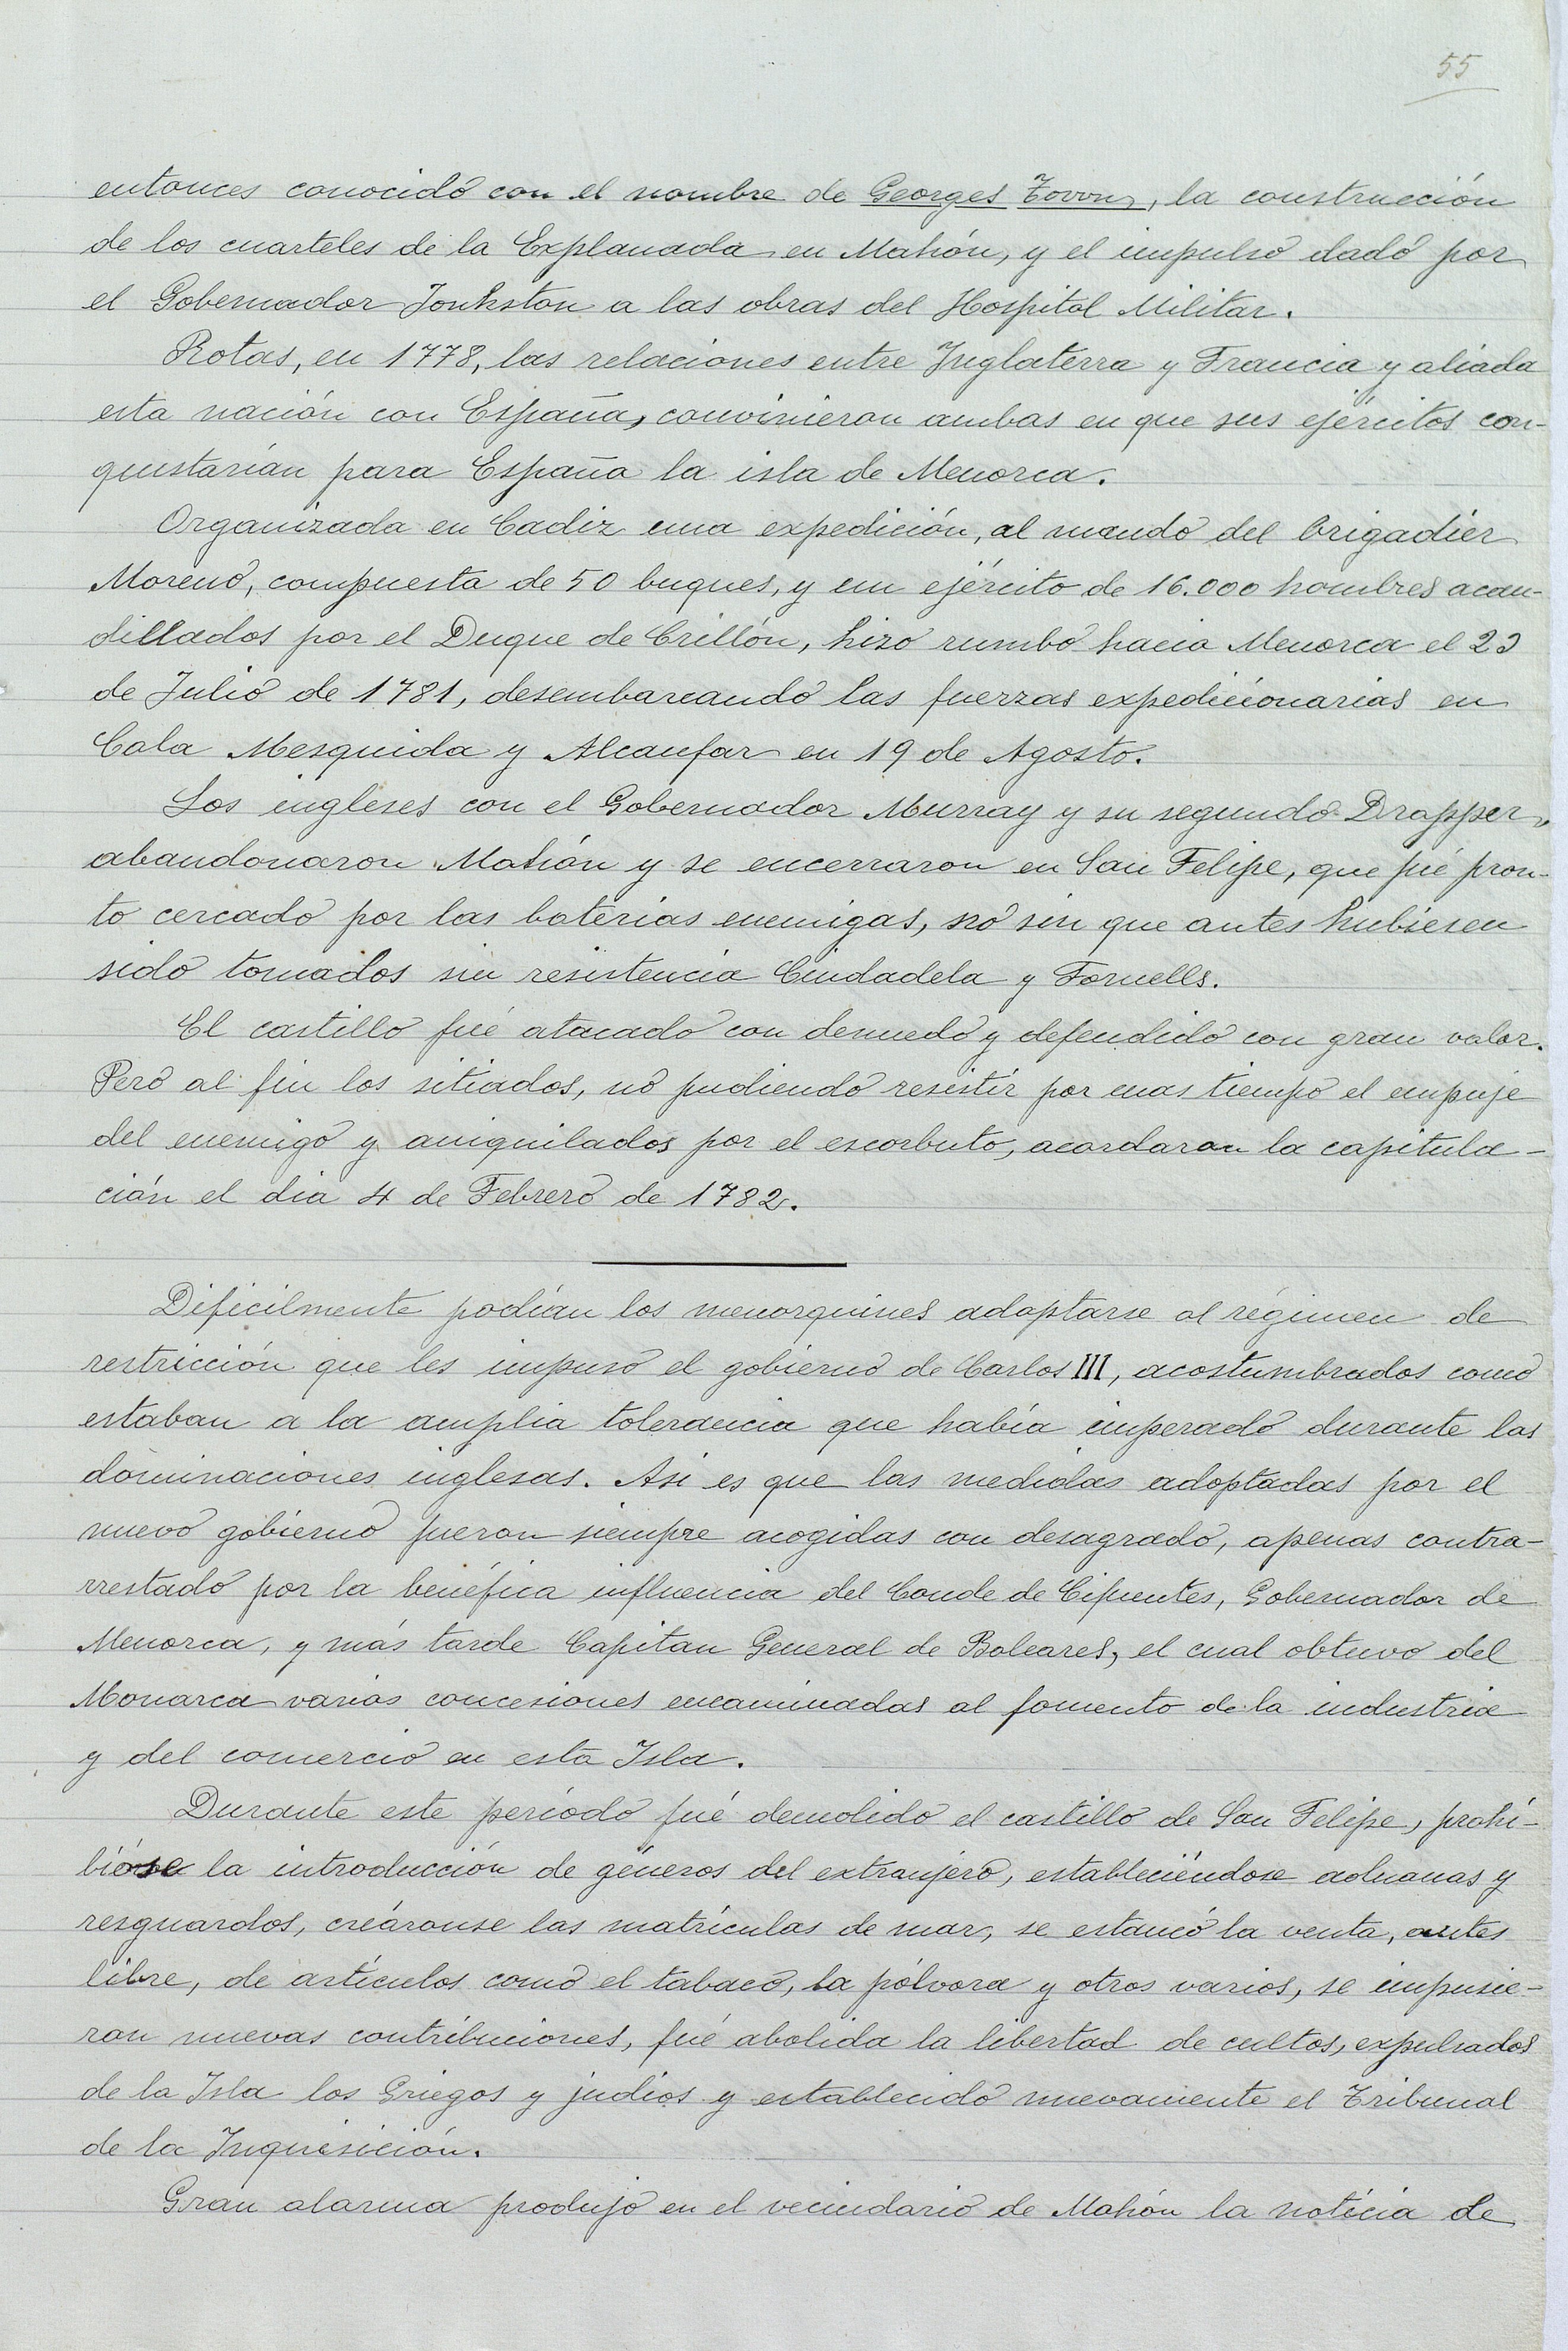 55
entonces conocido con el nombre de Georges Tovon, la construcción
de los cuarteles de la Explanada en Mahón, y el impulso dado por
el Gobernador Jonhston a las obras del Hospital Militar.
Rotas, en 1778, las relaciones entre Inglaterra y Francia y aliada
esta nación con España, convinieron ambas en que sus ejércitos con-
quistarían para España la isla de Menorca.
Organizada en Cadiz una expedición, al mando del brigadier
Moreno, compuesta de 50 buques, y un ejército de 16.000 hombres acau-
dillados por el Duque de Crillón, hizo rumbo hacia Menorca el 23
de Julio de 1781, desembarcando las fuerzas expedicionarias en
Cala Mesquida y Alcaufar en 19 de Agosto.
Los ingleses con el Gobernador Murray y su segundo Drapper,
abandonaron Mahón y se encerraron en San Felipe, que fué pron-
to cercado por las baterías enemigas, no sin que antes hubiesen
sido tomados sin resistencia Ciudadela y Fornells.
El castillo fué atacado con denuedo y defendido con gran valor.
Pero al fin los sitiados, no pudiendo resistir por mas tiempo el empuje
del enemigo y aniquilados por el escorbuto, acordaron la capitula-
ción el dia 4 de Febrero de 1782.
Dificilmente podían los menorquines adaptarse al régimen de
restricción que les impuso el gobierno de Carlos III, acostumbrados como
estaban a la amplia tolerancia que había imperado durante las
dominaciones inglesas. Asi es que las medidas adoptadas por el
nuevo gobierno fueron siempre acogidas con desagrado, apenas contra-
rrestado por la benéfica influencia del Conde de Cifuentes, Gobernador de
Menorca, y más tarde Capitan General de Baleares, el cual obtuvo del
Monarca varias concesiones encaminadas al fomento de la industria
y del comercio en esta Isla.
Durante este período fué demolido el castillo de San Felipe, prohi-
bióse la introducción de géneros del extranjero, estableciéndose aduanas y
resguardos, creáronse las matrículas de mar, se estancó la venta, antes
libre, de artículos como el tabaco, la pólvora y otros varios, se impusie-
ron nuevas contribuciones, fué abolida la libertad de cultos, expulsados
de la Isla los Griegos y judios y establecido nuevamente el Tribunal
de la Inquisición.
Gran alarma produjo en el vecindario de Mahón la noticia de